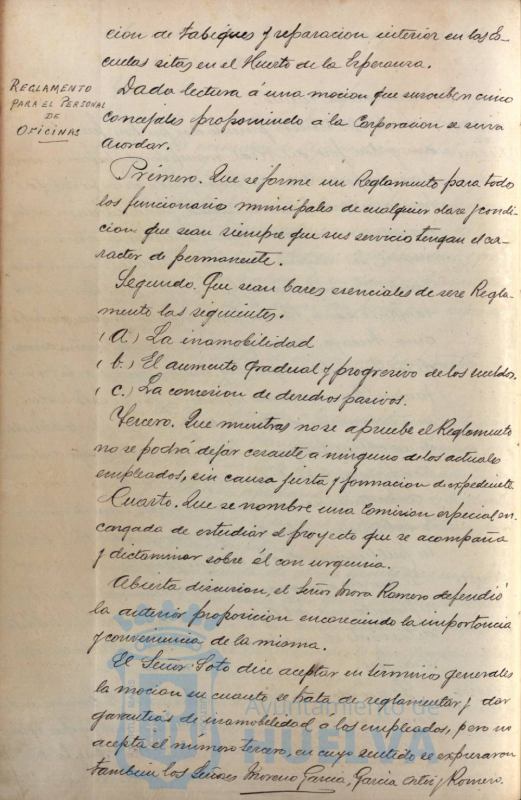 cion de tabiques y reparacion interior en las Es-
cuelas sitas en el Huerto de la Esperanza.
REGLAMENTO
PARA EL PERSONAL
DE
OFICINAS
Dada lectura á una mocion que suscriben cinco
concejales proponiendo á la Corporacion se sirva
acordar.
Primero. Que se forme un Reglamento para todo
los funcionario municipales de cualquier clase y condi-
cion que sean siempre que sus servicio tengan el ca-
racter de permanente.
Segundo. Que sean bases esenciales de ese Regla-
mento las siguientes.
(a.) La inamobilidad
(b.) El aumento gradual y progresivo de los sueldos.
(c.) La concesion de derechos pasivos.
Tercero. Que mientras no se apruebe el Reglamento
no se podrá dejar cesante á ninguno de los actuales
empleados, sin causa justa y formacion de expediente.
Cuarto. Que se nombre una Comision especial en-
cargada de estudiar el proyecto que se acompaña
y dictaminar sobre él con urgencia.
Abierta discusion, el Señor Mora Romero defendió
la anterior proposicion encareciendo la importancia
y conveniencia de la misma.
El Señor Soto dice aceptar en términos generales
la mocion en cuanto se trata de reglamentar y dar
garantias de inamobilidad á los empleados, pero no
acepta el número tercero, en cuyo sentido se expresaron
tambien los Señores Moreno Garcia, Garcia Ortiz y Romero.
Ayuntamiento de